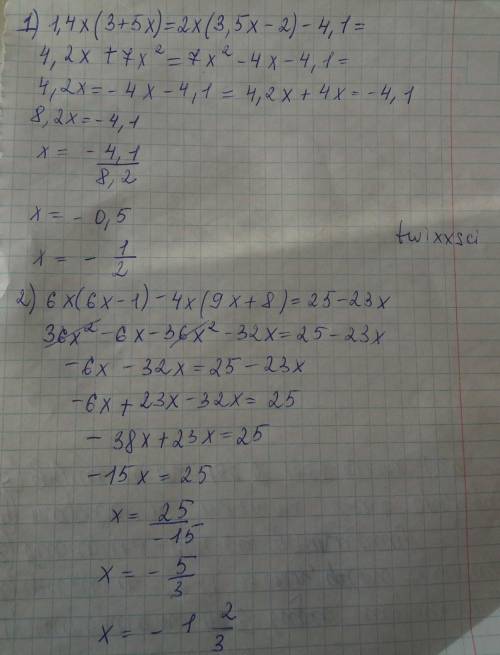 1) 1,4x(3+5x)=2x(3,5x-2)-4,1=
4,2x+7x²=7x²-4x-4,1=
4,2x=-4x-4,1=4,2x+4x=-4,1
8,2x=-4,1
x=-4,1/8,2
x=-0,5
twixxsci
x=-1/2
2) 6x(6x-1)-4x(9x+8)=25-23x
36x²-6x-36x²-32x=25-23x
-6x-32x=25-23x
-6x+23x-32x=25
-38x+23x=25
-15x=25
x=25/-15
x=-5/3
x=-1 2/3